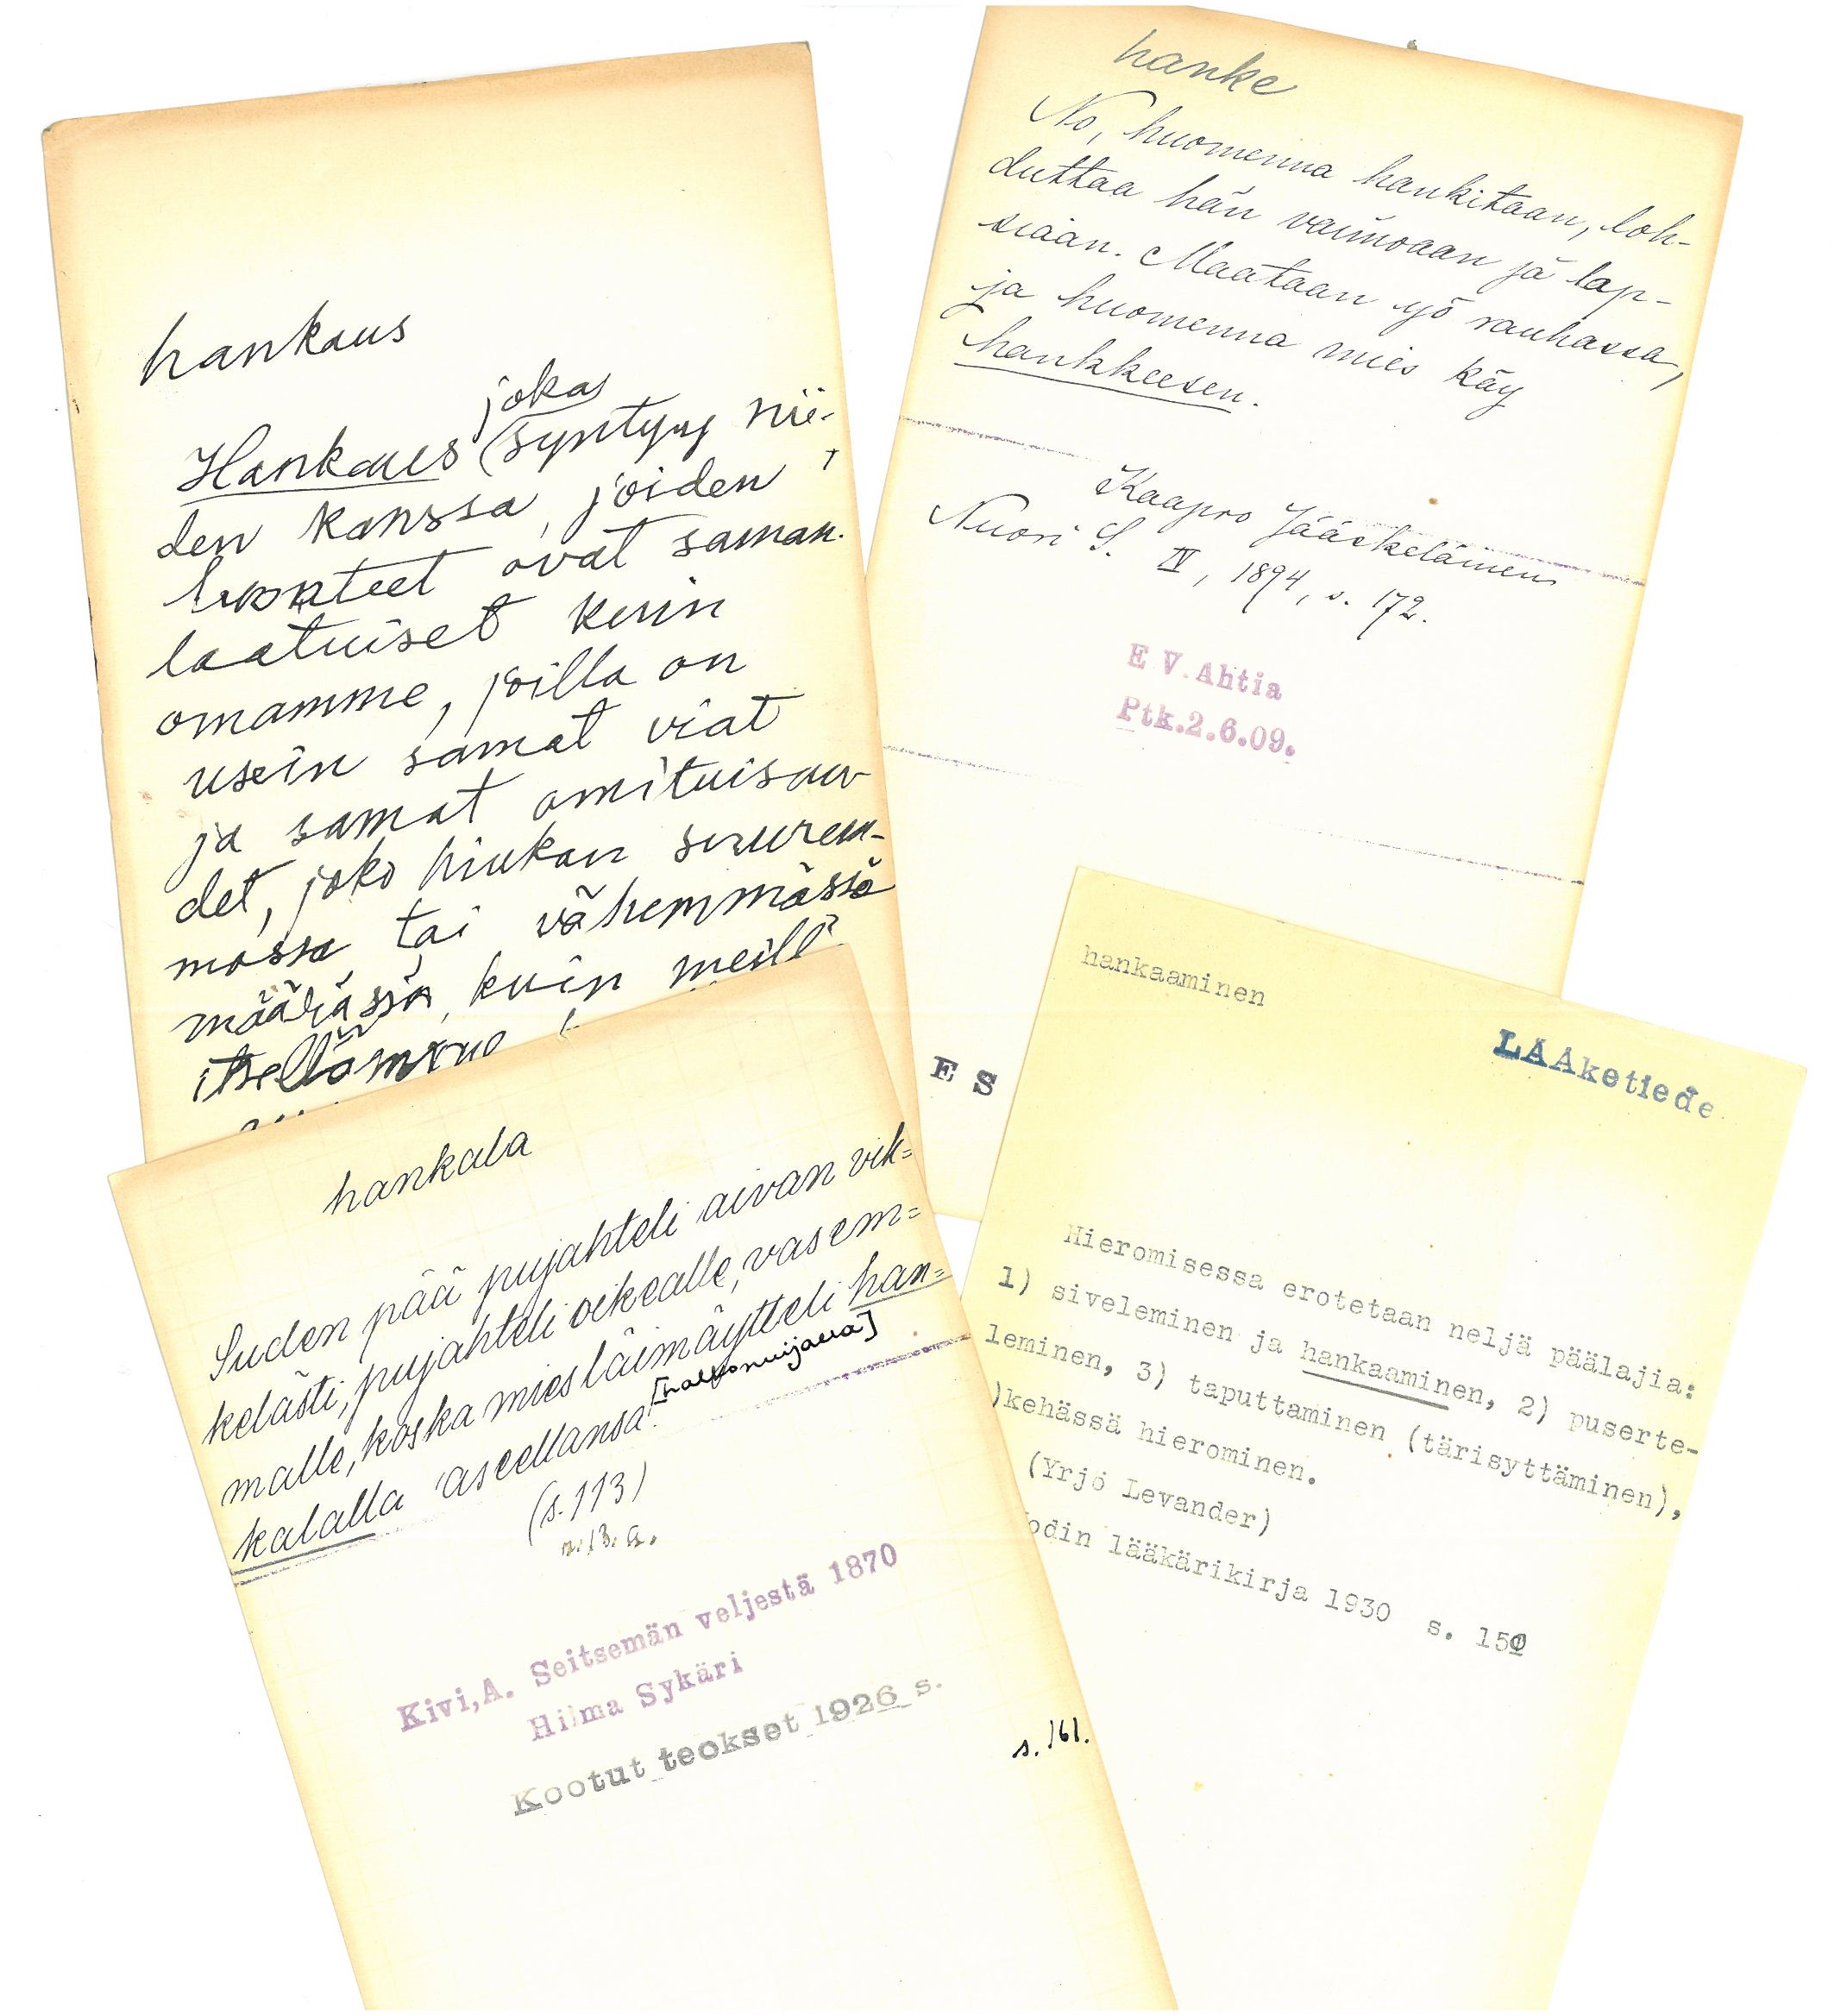 hankaus
joka
Hankaus (syntyy nii-
den kanssa, joiden
luonteet ovat saman-
laatuiset kuin
omamme, joilla on
usein samat viat
ja samat omituisuu-
det, joko hiukan suurem-
massa tai vähemmässä
määrässä, kuin meillä
itsellämme
hanke
No, huomenna hankitaan, loh-
duttaa hän vaimoaan ja lap-
siaan. Maataan yö rauhassa,
ja huomenna mies käy
hankkeesen.
Kaapro Jääskeläinen
Nuori S. IV, 1894, s. 172.
E V. Ahtia
Ptk.2.6.09.
E S
hankala
Suden pää pujahteli aivan vik=
kelästi, pujahteli oikealle, vasem=
malle, koska mies läimäytteli han=
kalalla aseellansa.
[halkonuijalla]
(s.113)
n.13.a.
Kivi,A. Seitsemän veljestä 1870
Hilma Sykäri
Kootut teokset 1926 s.
s. 161.
hankaaminen
LÄÄketiede
Hieromisessa erotetaan neljä päälajia:
1) siveleminen ja hankaaminen, 2) puserte-
leminen, 3) taputtaminen (tärisyttäminen),
)kehässä hierominen.
(Yrjö Levander)
odin lääkärikirja 1930 s. 151